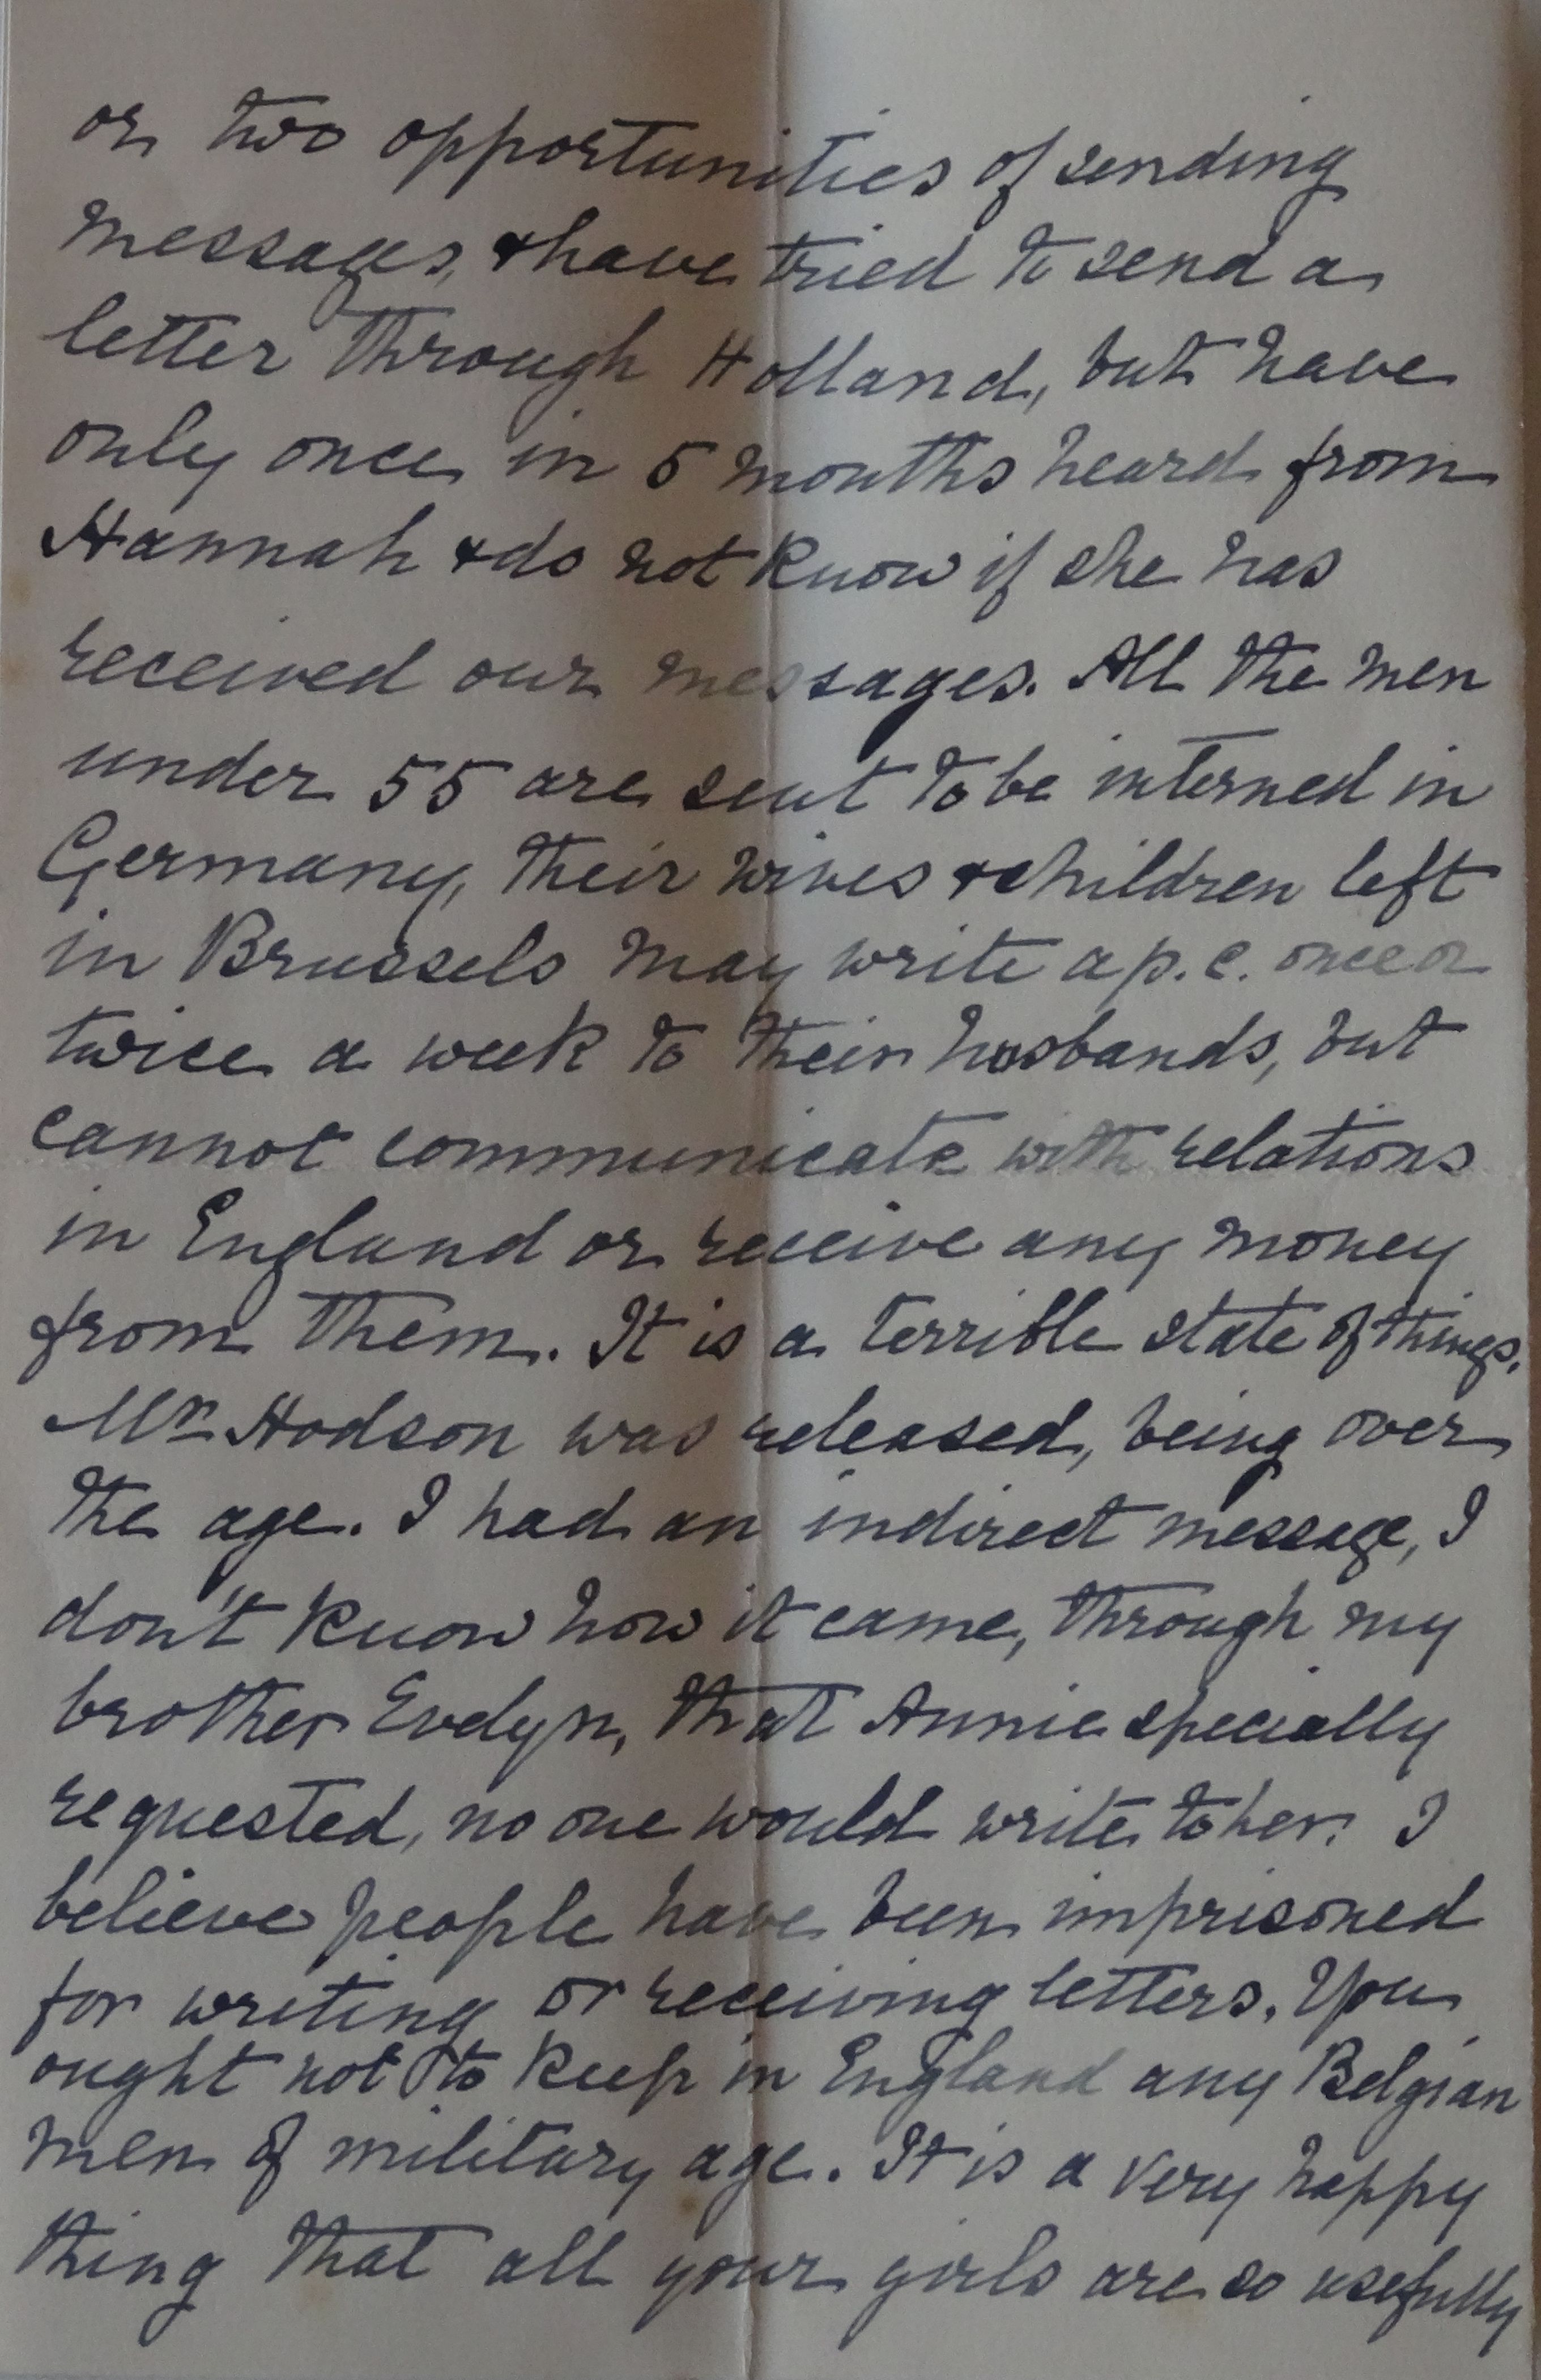 or two opportunities of sending
messages, & have tried to send a
letter through Holland, but have
only once in 5 months heard from
Hannah & do not know if she has
received our messages. All the men
under 55 are sent to be interned in
Germany, their wives & children left
in Brussels may write a p.c. once or
twice a week to their husbands, but
cannot communicate with relations
in England or receive any money
from them. It is a terrible state of things.
Mr Hodson was released, being over
the age. I had an indirect message, I
don't know how it came, through my
brother Evelyn, that Annie specially
requested, no one would write to her. I
believe people have been imprisoned
for writing or receiving letters. You
ought not to keep in England any Belgian
men of military age. It is a very happy
thing that all your girls are so usefully